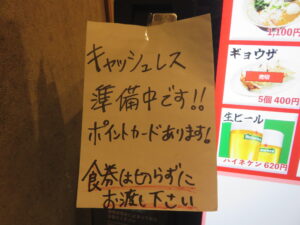 キャッシュレス
準備中です!!
ポイントカードあります!
食券は切らずに
お渡し下さい
1,100円
ギョウザ
5個 400円
生ビール
ハイネケン 620円